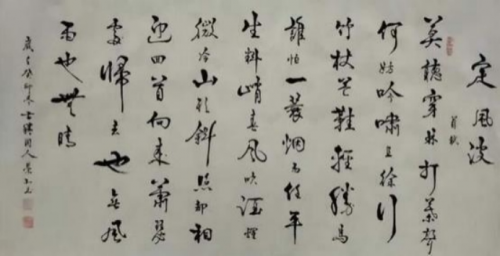 定風波
蘇軾
莫聽穿林打葉聲
何妨吟嘯且徐行
竹杖芒鞋輕勝馬
誰怕一蓑烟雨任平
生料峭春風吹酒醒
微冷山頭斜照却相
迎回首向來蕭瑟
處歸去也無風
雨也無晴
歲 癸卯